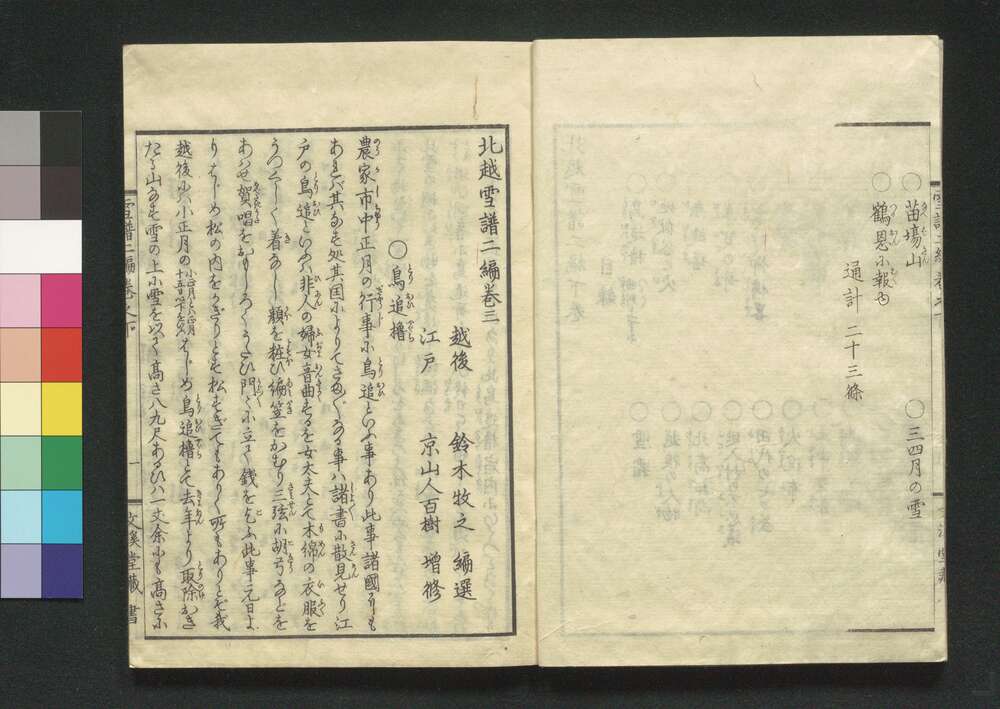 ○苗場山
○三四月の雪
○鶴恩に報ふ
通計二十三條
北越雪譜二編巻三
越後 鈴木牧之 編選
江戸 京山人百樹 増修
○鳥追櫓
農家市中正月の行事に鳥追といふ事あり此事諸國にも
あれバ其なす処其国によりてさま〴〵なる事ハ諸書に散見せり江
戸の鳥追といふハ非人の婦女音曲するを女太夫とて木綿の衣服を
うつくしく着なし顔を粧ひ編笠をかむり三弦に胡弓などを
あハせ賀唱をおもしろくうたひ門〻に立て銭を乞ふ此事元日よ
りはじめ松の内をかぎりとす松すぎてもありく所もありとぞ我
越後にハ小正月のはじめ鳥追櫓とて去年より取除おき
たる山なす雪の上に雪を以て高さ八九尺あるひハ一丈余にも高さに
雪譜二編巻之下
一
文溪堂藏書